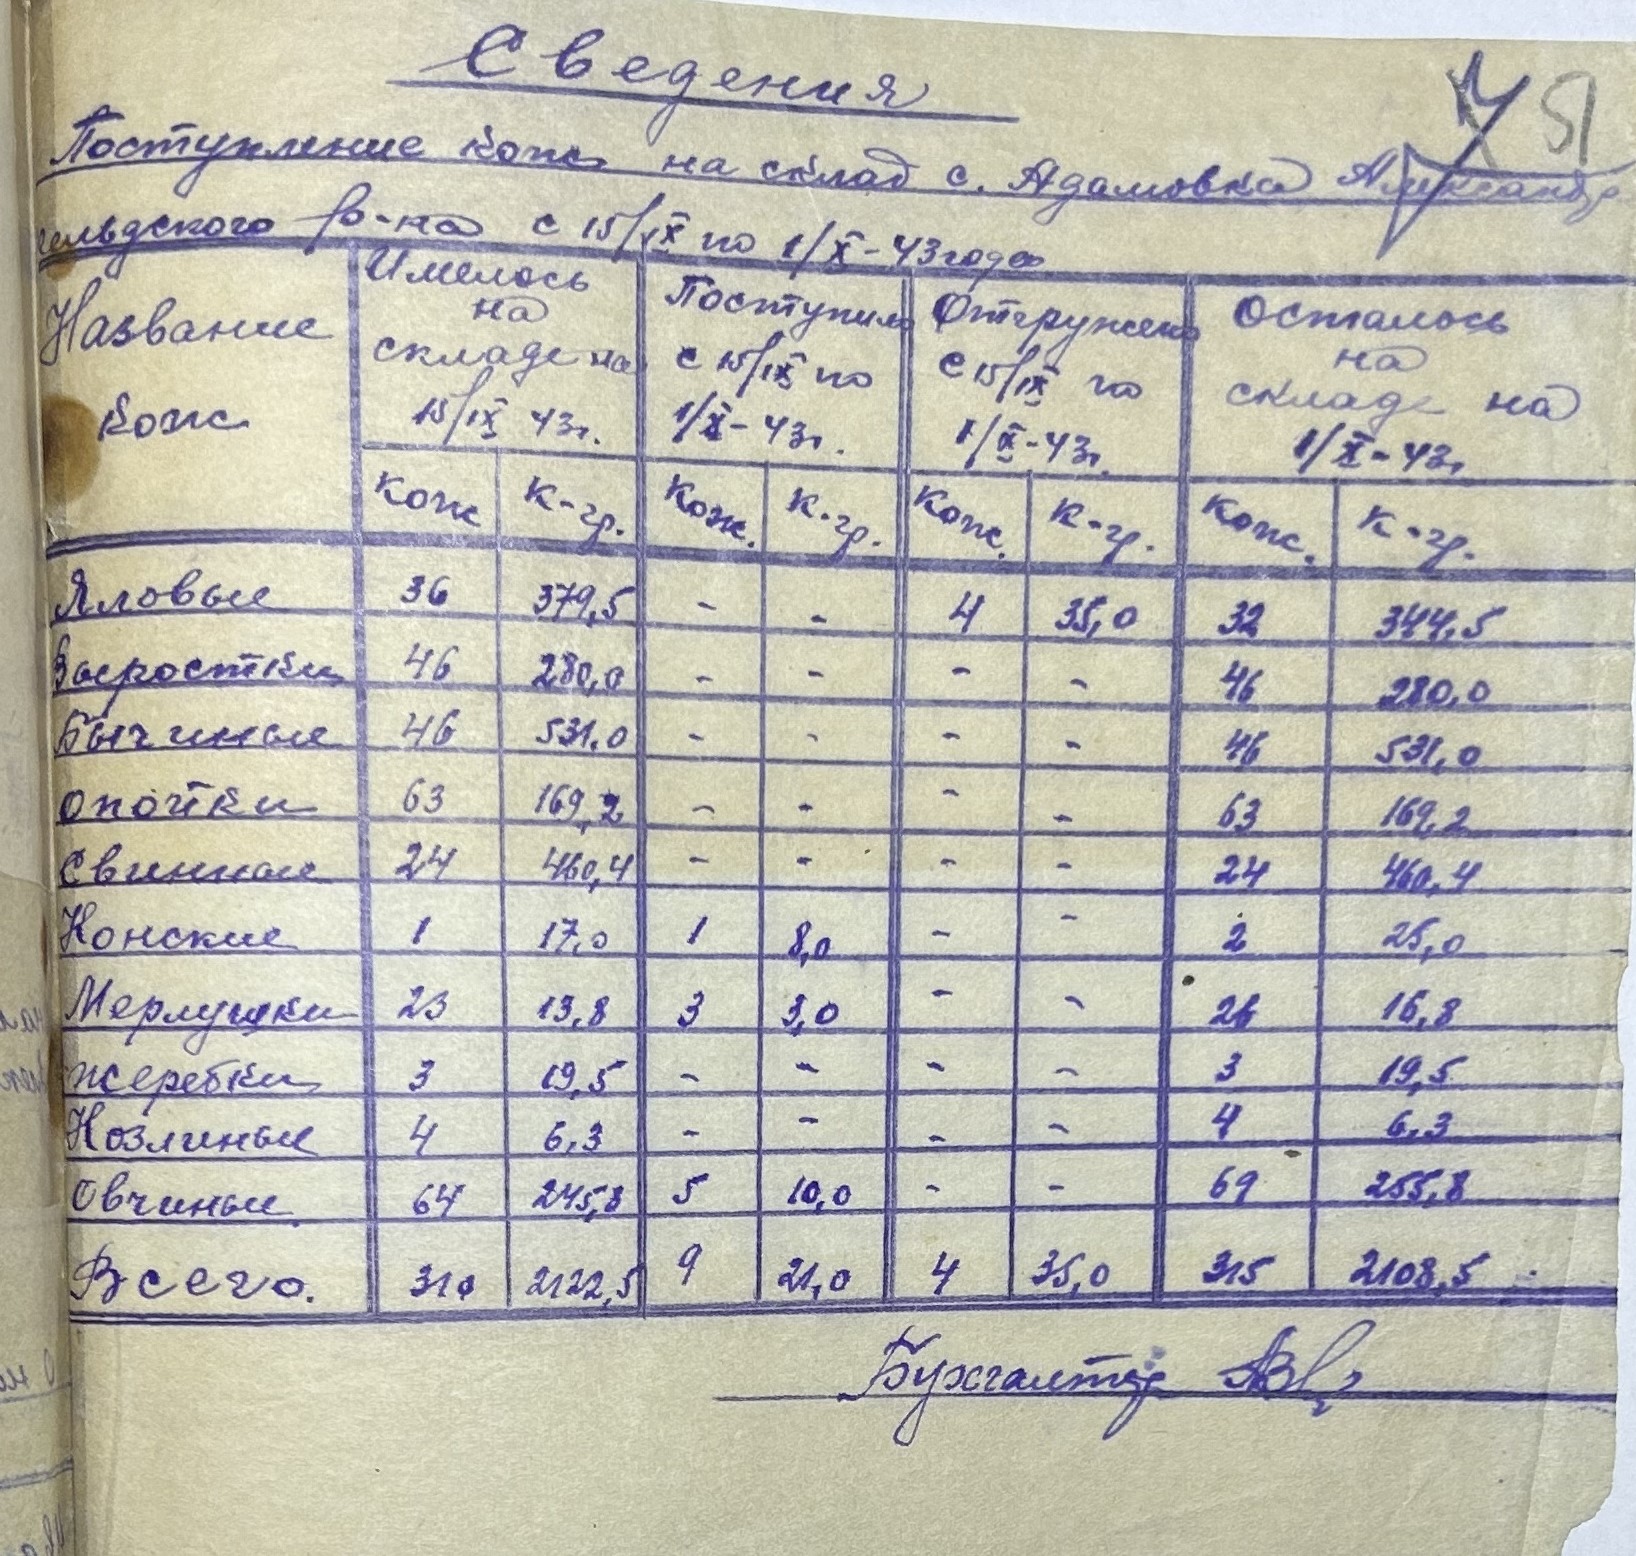 51
Сведения
Поступление кож на склад с. Адамовка Александр
фельдского р-на с 15/IX по 1/X-43 года
Название кож | Имелось на складе на 15/IX 43г. | Поступило с 15/IX по 1/X-43г. | Отгружено с 15/IX по 1/X-43г. | Осталось на складе на 1/X-43г.
Кож | К-гр. | Кож. | К-гр. | Кож. | К-гр. | Кож. | К-гр.
Яловые | 36 | 379,5 | - | - | 4 | 35,0 | 32 | 344,5
Выростки | 46 | 280,0 | - | - | - | - | 46 | 280,0
Бычиные | 46 | 531.0 | - | - | - | - | 46 | 531,0
опойки | 63 | 169,2 | - | - | - | - | 63 | 169,2
Свинные | 24 | 460,4 | - | - | - | - | 24 | 460,4
Конские | 1 | 17,0 | 1 | 8,0 | - | - | 2 | 25,0
Мерлушки | 23 | 13,8 | 3 | 3,0 | - | - | 26 | 16,8
жеребки | 3 | 19,5 | - | - | - | - | 3 | 19,5
Козлиные | 4 | 6,3 | - | - | - | - | 4 | 6,3
Овчиные | 64 | 245,8 | 5 | 10,0 | - | - | 69 | 255,8
Всего. | 310 | 2122,5 | 9 | 21,0 | 4 | 35,0 | 315 | 2108,5
Бухгалтер